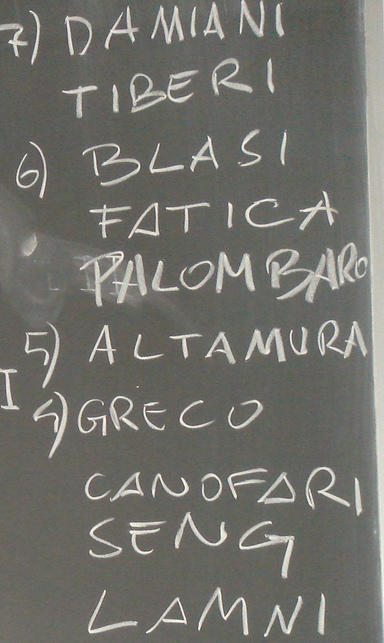 7) DAMIANI
TIBERI
6) BLASI
FATICA
PALOMBARO
5) ALTAMURA
I
4) GRECO
CANOFARI
SENG
LAMNI